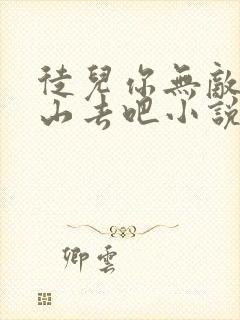 徒兒你無敵
山去吧小說
卿雲